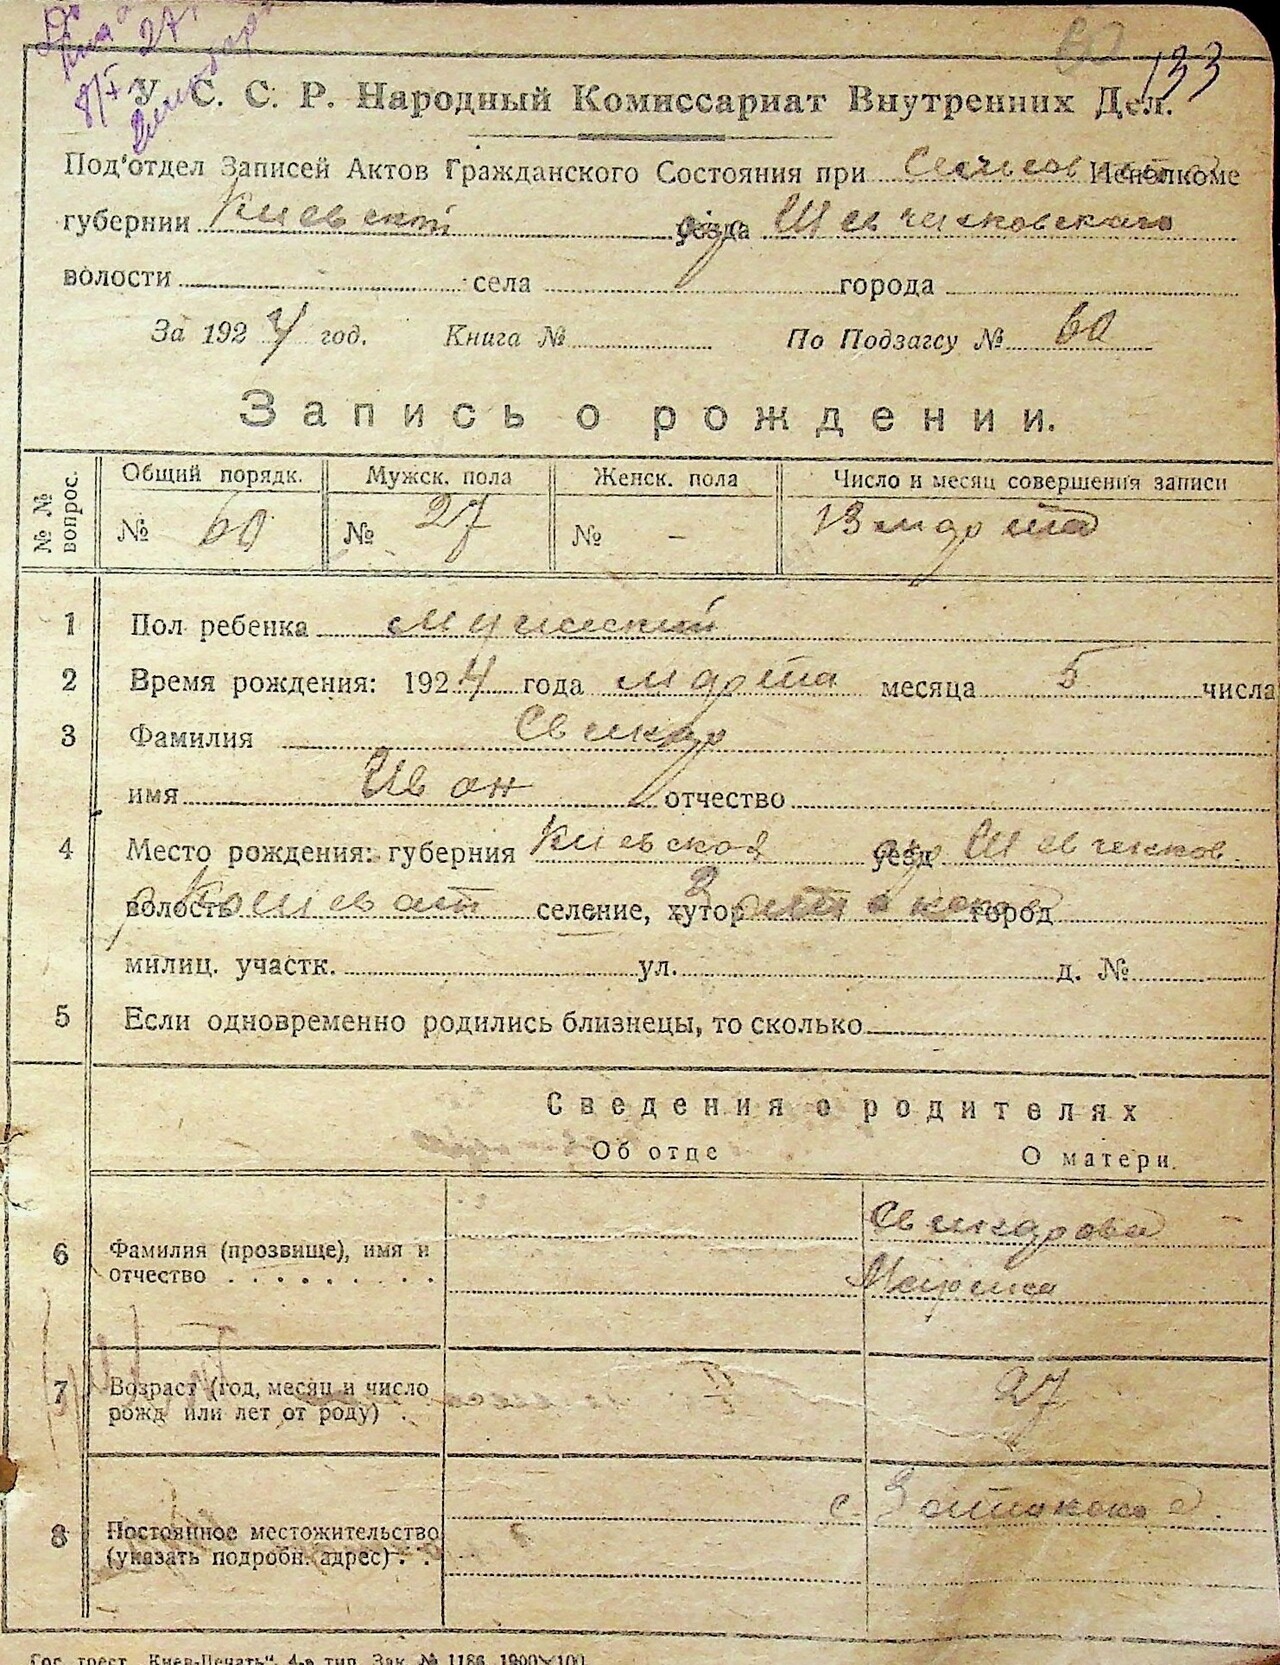 133
У. С. С. Р. Народный Комиссариат Внутренних Дел.
Под'отдел Записей Актов Гражданского Состояния при Исполкоме
губернии Киевской уезда Шевченковского
волости села города
За 1924 год. Книга № По Подзагсу № 60
Запись о рождении.
№ № вопрос. Общий порядк. Мужск. пола Женск. пола Число и месяц совершения записи
№ 60 № 27 № - 13 марта
1 Пол ребенка мужской
2 Время рождения: 1924 года марта месяца 5 числа
3 Фамилия Свинар
имя Иван отчество
4 Место рождения: губерния Киевская уезд Шевченков.
волость селение, хутор город
милиц. участк. ул. д. №
5 Если одновременно родились близнецы, то сколько
Сведения о родителях
Об отце О матери.
Свинарова
6 Фамилия (прозвище), имя и
отчество . . . . . . . . . Марина
7 Возраст (год, месяц и число 27
рожд или лет от роду) .
с.
8 Постоянное местожительство
(указать подробн. адрес) . .
Гос. трест „Киев-Печать“, 4-я тип. Зак. № 1186. 1900×100